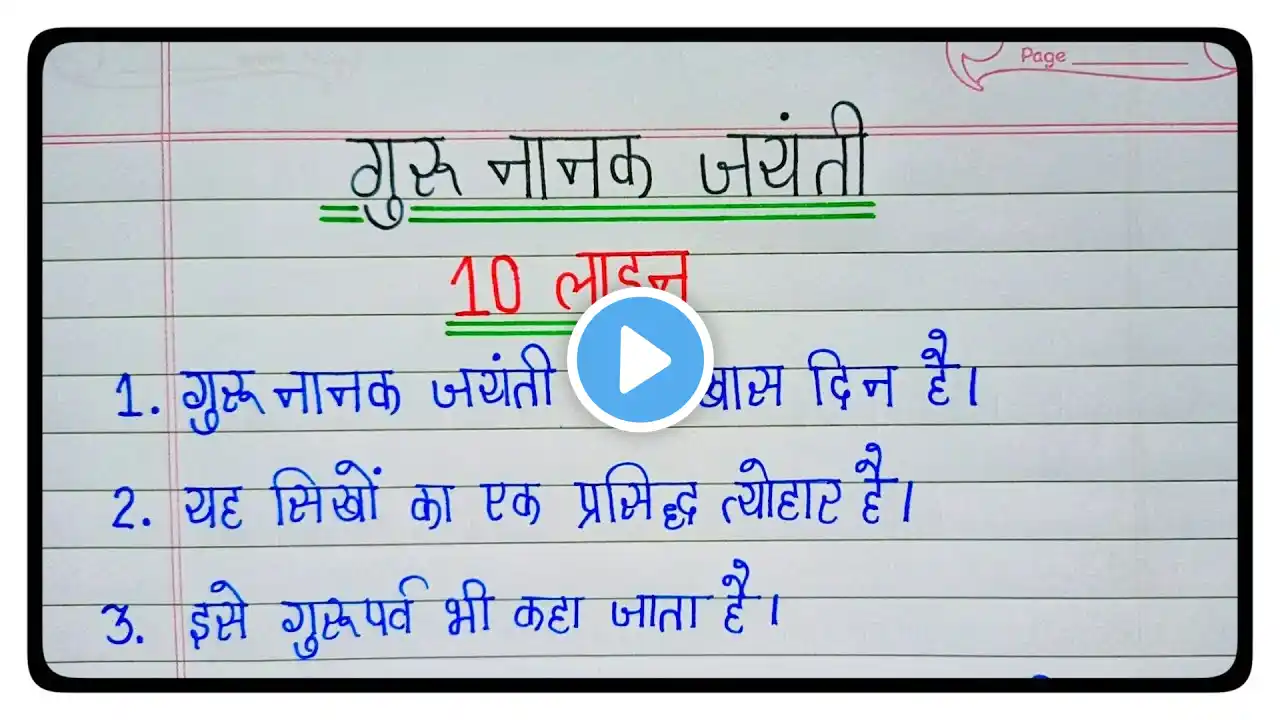 Page
गुरु नानक जयंती
10 लाइन
1. गुरु नानक जयंती खास दिन है।
2. यह सिखों का एक प्रसिद्ध त्योहार है।
3. इसे गुरुपर्व भी कहा जाता है।